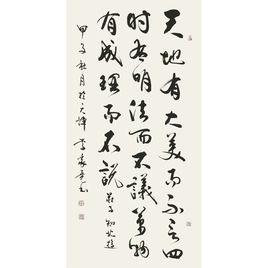 天地有大美而不言四
时有明法而不議萬物
有成理而不説 莊子知北遊
甲子秋月於天津 李家尧書